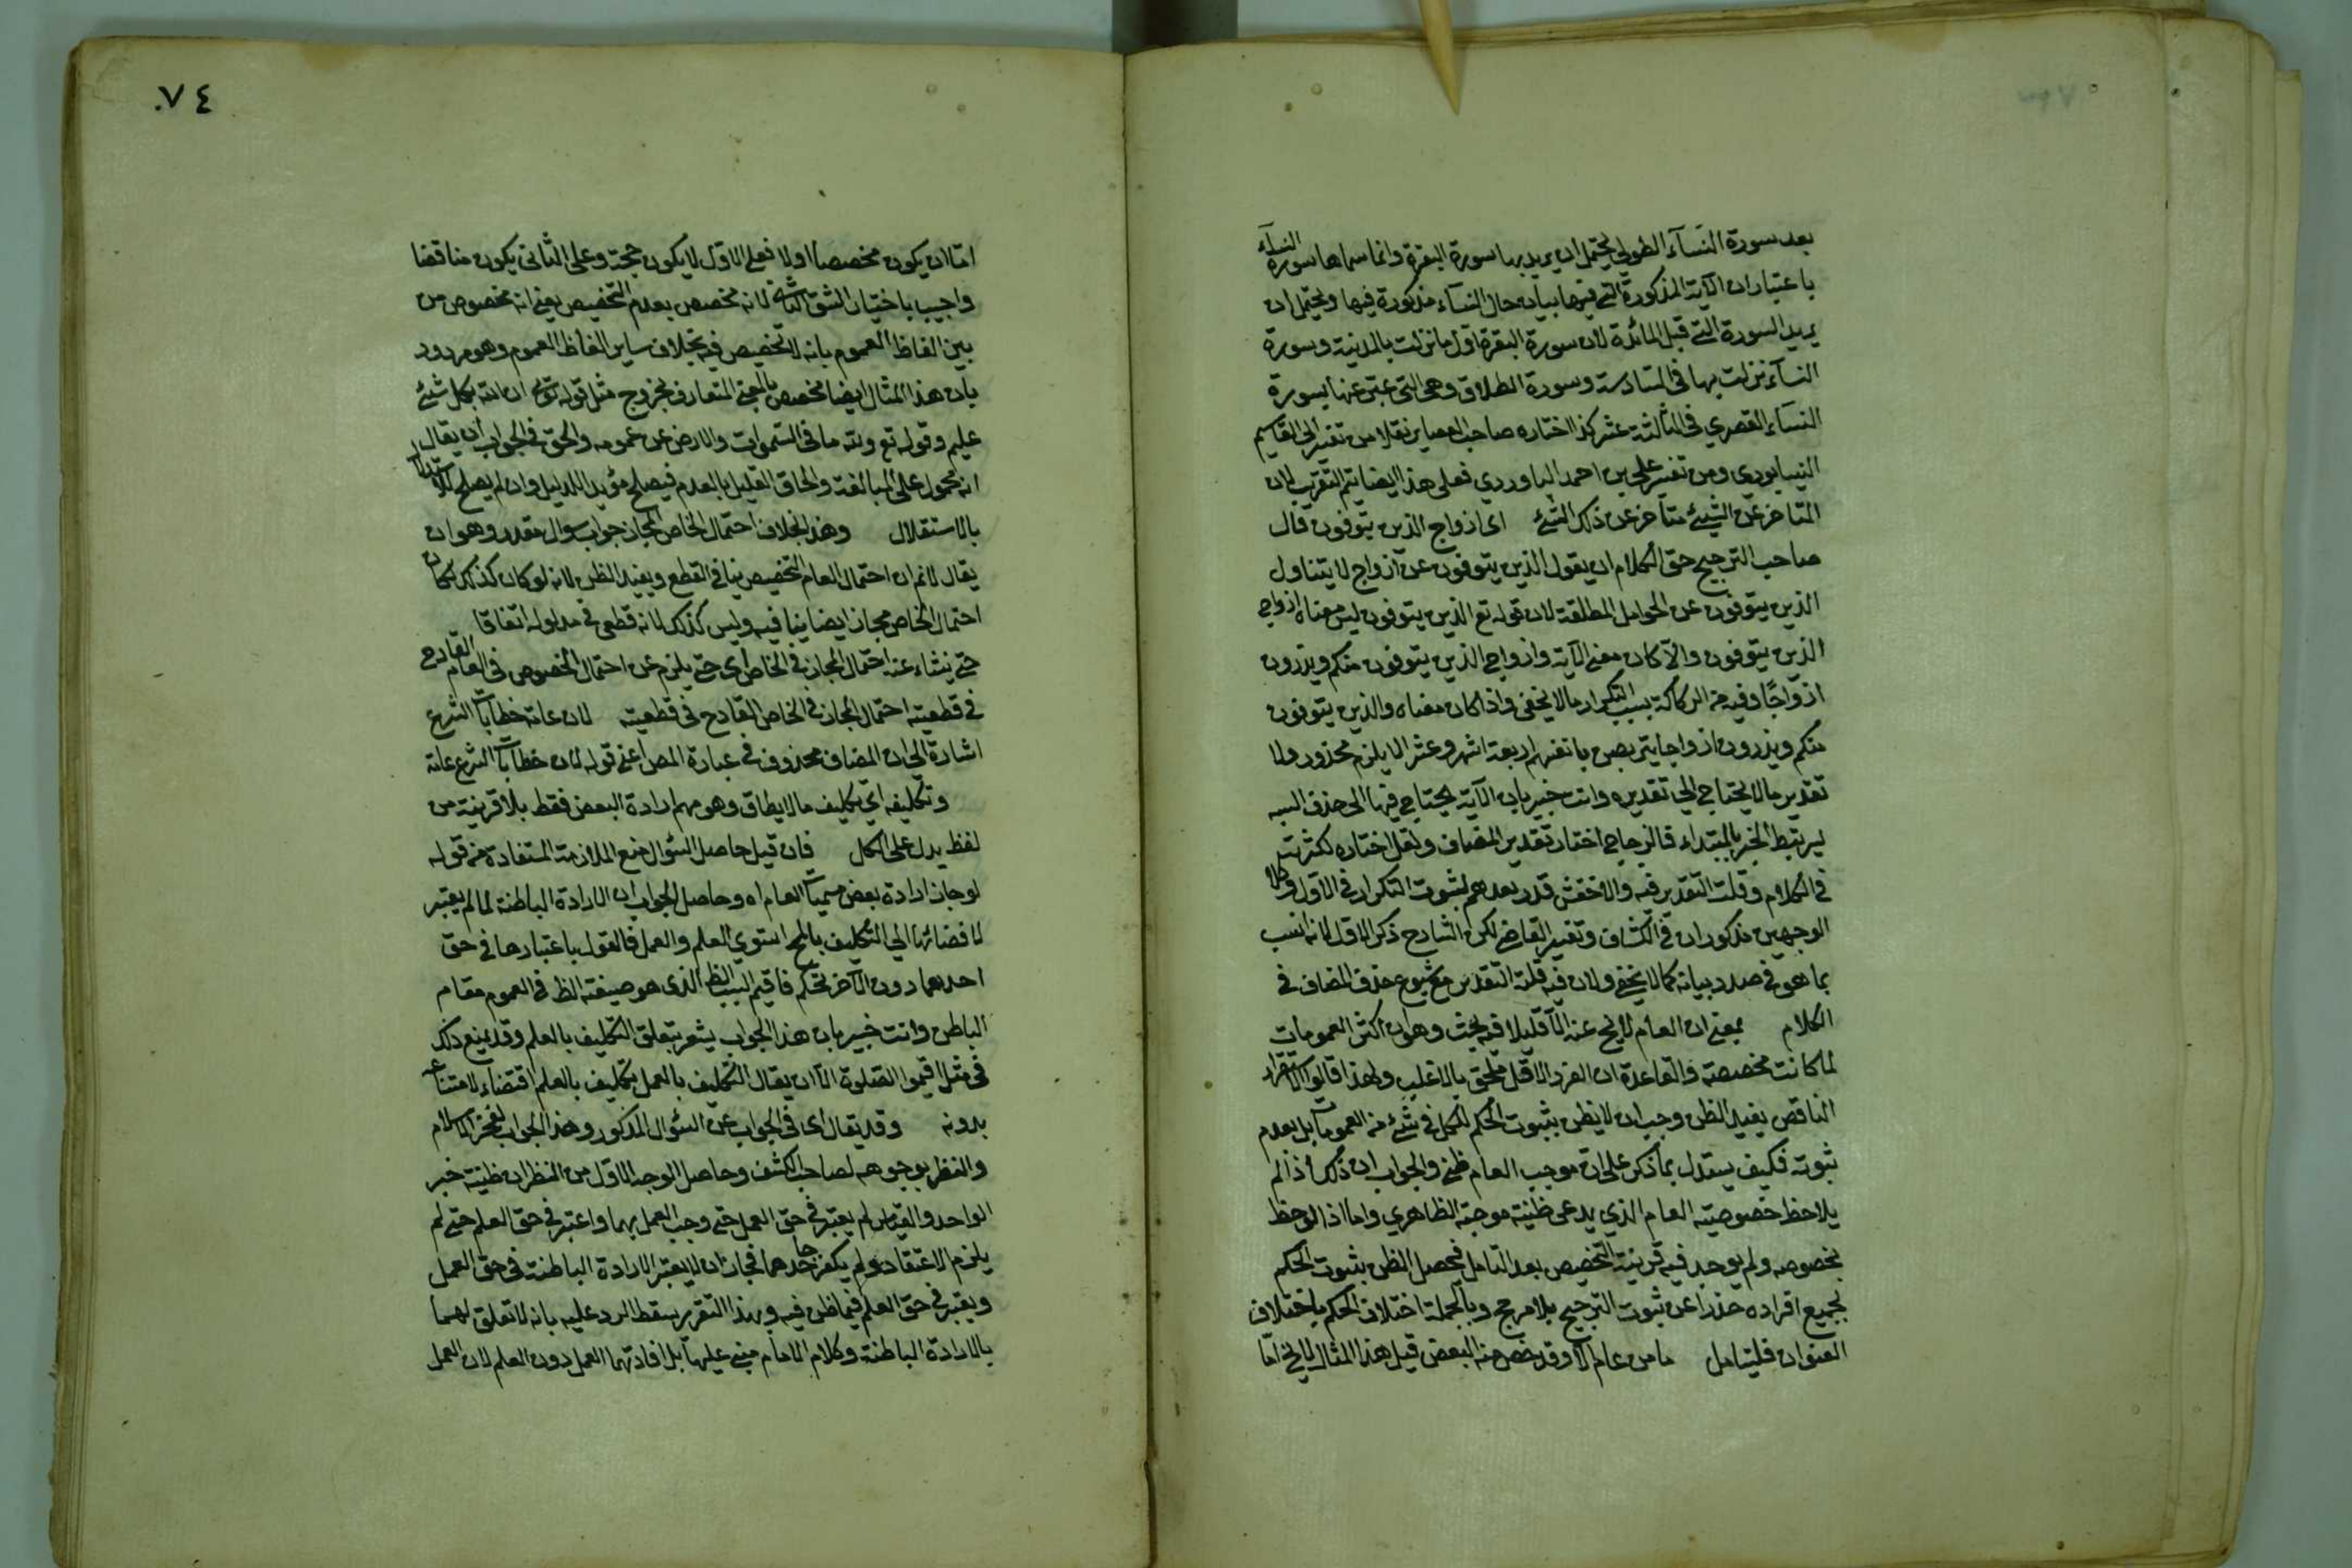 بعد سورة النسآء الطولى يحتمل ان يريد بها سورة البقرة وانما سماها سورة النسآء
باعتبار ان الآية المذكورة التي فيها بيان حال النسآء مذكورة فيها ويحتمل ان
يريد السورة التي قبل المائدة لان سورة البقرة اول ما نزلت بالمدينة وسورة
النسآء نزلت بها في السادسة وسورة الطلاق وهي التي عبر عنها بسورة
النسآء القصري في الثالثة عشر كذا اختاره صاحب نقلا من تفسير ابي القاسم
النيسابوري ومن تفسير علي بن احمد الباوردي فعلى هذا ايضا يتم التقريب لان
المتاخر عن الشيئ متاخر عن ذلك الشئ اى ازواج الذين يتوفون قال
صاحب الترجيح حق الكلام ان يقول الذين يتوفون عن ازواج لا يتناول
الذين يتوفون عن الحوامل المطلقة لان قوله تع الذين يتوفون ليس معناه ازواج
الذين يتوفون والا كان معنى الآية وازواج الذين يتوفون منكم ويذرون
ازواجًا وفيه من الركاكة بسبب التكرار ما لا يخفى واذا كان معناه والذين يتوفون
منكم ويذرون ازواجا يتربصن بانفسهم اربعة اشهر وعشرا لا يلزم محذور ولا
تقدير ما لا يحتاج الى تقديره وانت خبير بان الآية يحتاج فيها الى حذف
ليرتبط الخبر بالمبتداء فالزجاج اختار تقدير المضاف ولعل اختاره لكثرته
في الكلام وقلت التقدير فيه والاخفش قدر بعدهم لثبوت التكرار في الاول وكلا
الوجهين مذكوران في الكشاف وتفسير القاضي لكن الشارح ذكر الاول لانه انسب
بما هو في صدد بيانه كما لا يخفى ولان فيه قلة التقدير مع شيوع حذف المضاف في
الكلام بمعنى ان العام لا يخ عنه الا قليلا فيه بحث وهو ان اكثر العمومات
لما كانت مخصصة والقاعدة ان الفرد الاقل ملحق بالاغلب ولهذا قالوا الاستقراء
الناقص يفيد الظن وجب ان لا يظن بثبوت الحكم للكل في شئ من العمومات بل بعدم
ثبوته فكيف يستدل بما ذكر على ان موجب العام ظني والجواب ان ذلك اذا لم
يلاحظ خصوصية العام الذي يدعى ظنية موجبة الظاهري واما اذا لوحظ
بخصوصه ولم يوجد فيه قرينة التخصيص بعد التامل فيحصل الظن بثبوت الحكم
لجميع افراده حذرا عن ثبوت الترجيح بلا مرجح وبالجملة اختلاف الحكم باختلاف
العنوان فليتامل ما من عام الا وقد خص منه البعض قيل هذا المثال لا يخ اما
٧٤
اما ان يكون مخصصا اولا فعلى الاول لا يكون حجة وعلى الثاني يكون مناقضا
واجيب باختيار الشق الثاني لانه مخصص بعدم التخصيص يعنى انه مخصوص من
بين الفاظ العموم بانه لا تخصيص فيه بخلاف ساير الفاظ العموم وهو مردود
بان هذا المثال ايضا مخصص بالمعنى المتعارف بخروج مثل قوله تع ان الله بكل شيئ
عليم وقوله تع ولله ما في السموات والارض عن عمومه والحق في الجواب ان يقال
انه محمول على المبالغة والحاق القليل بالعدم فيصلح مؤيدا للدليل وان لم يصلح للاستدلال
بالاستقلال وهذا بخلاف احتمال الخاص المجاز جواب سوال مقدر وهو ان
يقال لا نم ان احتمال العام التخصيص ينافي القطع ويفيد الظن لانه لو كان كذلك لكان
احتمال الخاص مجاز ايضا ينافيه وليس كذلك لانه قطعى في مدلوله اتفاقا
حتى ينشاء عنه احتمال المجاز في الخاص اى حتى يلزم عن احتمال الخصوص في العام القادح
في قطعيته احتمال المجاز في الخاص القادح في قطعيته لان عامة خطابات الشرع
اشارة الى ان المضاف محذوف في عبارة المص اعني قوله لان خطابات الشرع عامة
وتكليفه اي تكليف ما لا يطاق وهو مهم ارادة البعض فقط بلا قرينة من
لفظ يدل على الكل فان قيل حاصل السؤال منع الملازمة المستفادة من قوله
لو جاز ارادة بعض مسميات العام اه وحاصل الجواب ان الارادة الباطنة لما لم يعتبر
لافضائها الى التكليف بالمح استوى العلم والعمل فالقول باعتبارها في حق
احدهما دون الآخر تحكم فاقيم السبب الظ الذى هو صيغته الظ في العموم مقام
الباطن وانت خبير بان هذا الجواب يشعر بتعلق التكليف بالعلم وقد يمنع ذلك
في مثل اقيموا الصلوة الا ان يقال التكليف بالعمل تكليف بالعلم اقتضاء لامتناعه
بدونه وقد يقال اى في الجواب عن السؤال المذكور وهذا الجواب لفخر الاسلام
والنظر بوجوهه لصاحب الكشف وحاصل الوجه الاول من النظر ان ظنية خبر
الواحد والقياس لم يعتبر في حق العمل حتى وجب العمل بهما واعتبر في حق العلم حتى لم
يلزم الاعتقاد ولم يكفر جاحدهما فجاز ان لا يعتبر الارادة الباطنة في حق العمل
ويعتبر في حق العلم فيما ظن فيه وبهذا التقرير سقط الرد عليه بانه لا تعلق لهما
بالارادة الباطنة وكلام الامام مبني عليها بل افادتهما العمل دون العلم لان العمل